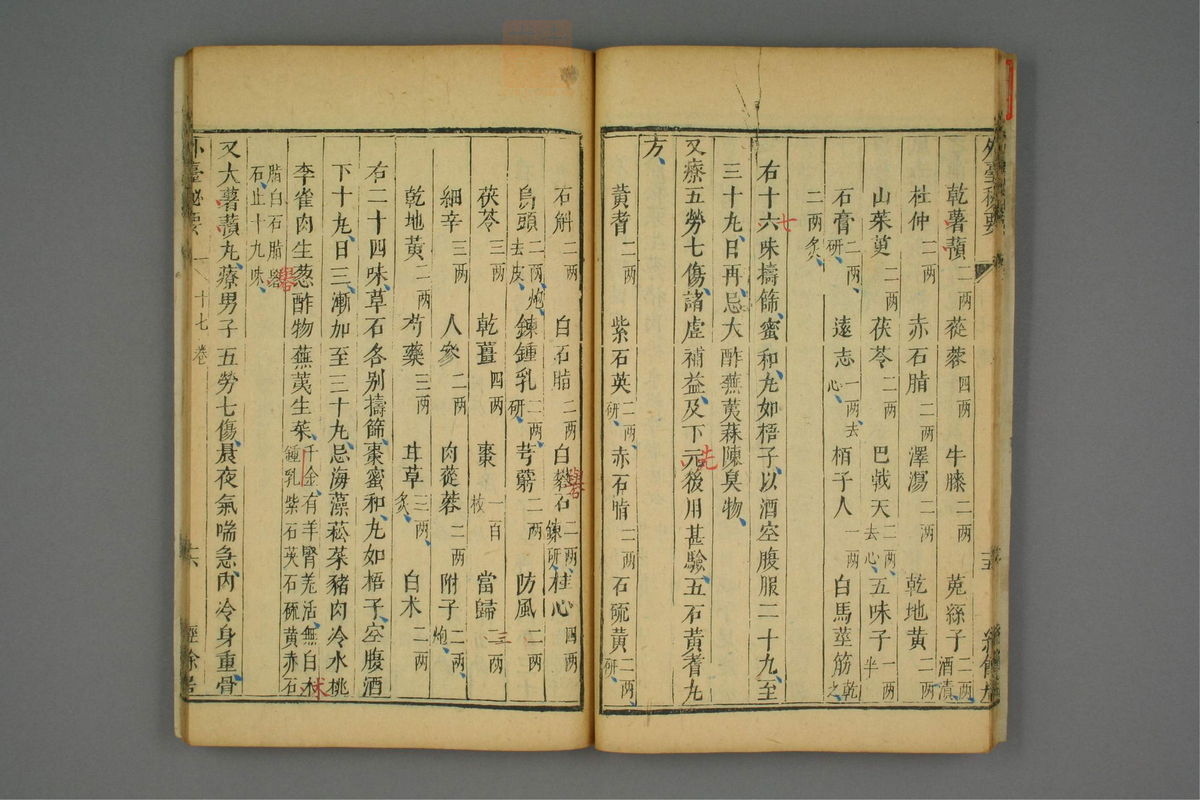 外臺秘要
乾薯蕷二两 蓯蓉四两 牛膝二两 菟絲子二两酒漬
杜仲二两 赤石脂二两 澤瀉二两 乾地黄二两
山茱萸二两 茯苓二两 巴戟天二两去心 五味子一两半
石膏二两研 遠志一两去心 栢子人一两 白馬莖筋乾之
二两炙
右十六味擣篩蜜和丸如梧子以酒空腹服二十丸至
七
三十丸日再忌大酢蕪荑蒜陳臭物
又療五勞七傷諸虚補益及下元後用甚驗五石黄耆丸
先
方
黄耆二两 紫石英二两研 赤石脂二两 石硫黄二两研
石斛二两 白石脂二两 白礬石二两鍊研 桂心四两
礜
烏頭二两炮去皮 鍊鍾乳二两研 芎藭二两 防風二两
茯苓三两 乾薑四两 棗一百枚 當歸二两
三
細辛三两 人參二两 肉蓯蓉二两 附子二两炮
乾地黄二两 芍藥三两 甘草三两炙 白术二两
右二十四味草石各别擣篩棗蜜和丸如梧子空腹酒
下十丸日三漸加至三十丸忌海藻菘菜豬肉冷水桃
李雀肉生葱酢物蕪荑生菜千金有羊腎羌活無白木鍾乳紫石英石硫黄赤石
术
脂白石脂礜石止十九味
礜
又大薯蕷丸療男子五勞七傷晨夜氣喘急内冷身重骨
外臺秘要 十七卷 經餘居